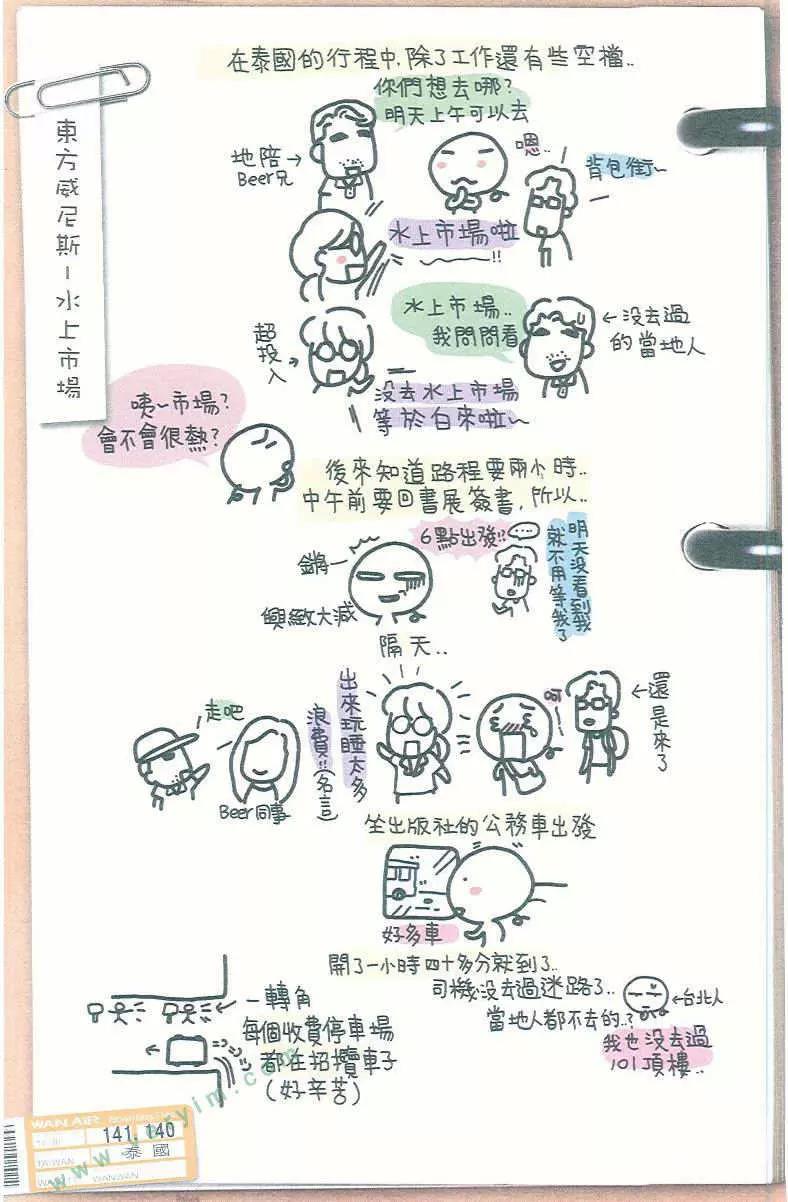 東方威尼斯-水上市場
在泰國的行程中,除了工作還有些空檔..
你們想去哪?
明天上午可以去
地陪→
Beer兄
嗯..
背包街~
水上市場啦
~!!
水上市場..
我問問看
←沒去過
的當地人
超投入
沒去水上市場
等於白來啦~
咦~市場?
會不會很熱?
後來知道路程要兩小時..
中午前要回書展簽書,所以..
鏘一
興緻大減
6點出發!?
...
明天沒看到我
就不用等我了
隔天..
走吧
Beer同事
出來玩睡太多
浪費!!(名言)
呵
←還是來了
坐出版社的公務車出發
好多車
開了一小時四十多分就到了..
司機沒去過迷路了..
當地人都不去的..?
←台北人
我也沒去過
101頂樓..
一轉角
每個收費停車場
都在招攬車子
(好辛苦)
WAN AIR
141.140
泰國
TAIWAN
WANWAN
www.yuyim.com